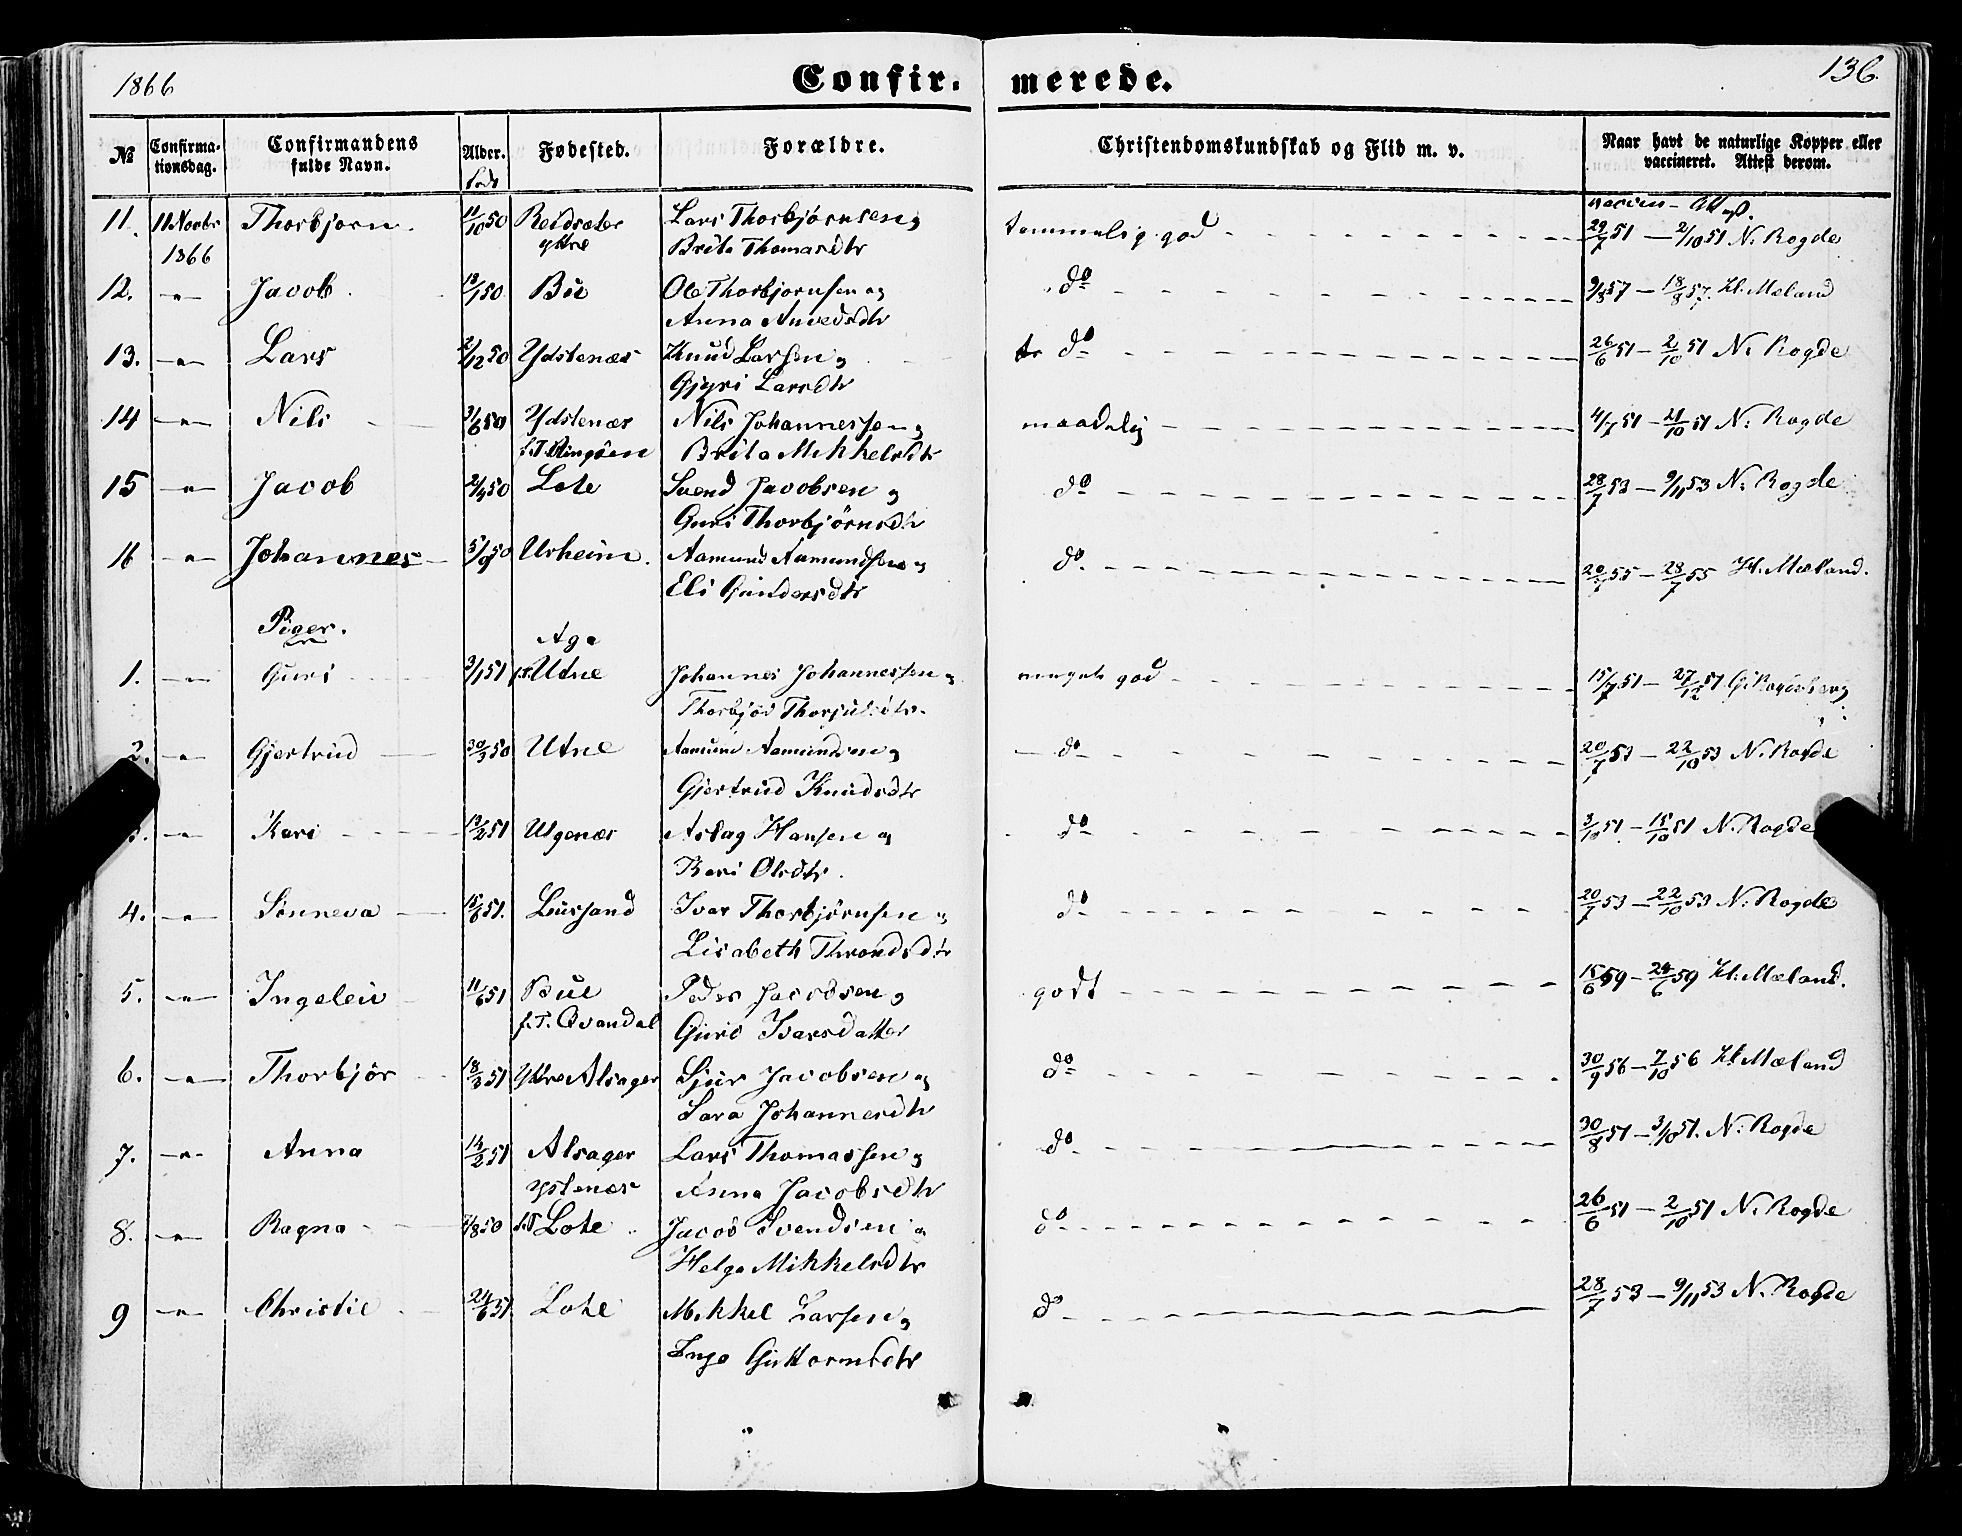 1866 Confir- merede. 136.
№ Confirma- Confirmandens Alder. Fødested. Forældre. Christendomskundskab og Flid m. v. Naar havt de naturlige Kopper eller
tionsdag. fulde Navn. vaccineret. Attest derom.
født
vaccin- Att.
11. 11 Novbr Thorbjørn. 11/10 50 Reidsæter Lars Thorbjørnsen og temmelig god 29/7 51 — 2/10 51 N. Rogde
1866 ystre Brita Thomasdtr
12. —〃— Jacob 13/1 50 Bu Ole Thorbjørnsen og do 9/8 57 — 18/8 57. H. Mæland
Anna
13. —〃— Lars 2/12 50 Ydstenæs Knud Larsen og do 26/6 51 — 2/10 51 N. Rogde
Gjyri Larsdtr
14 —〃— Nils 3/6 50 Ydstenæs Nils Johannessen og maadelig 4/7 51 — 21/10 51 N. Rogde
f.T. Ringøen Brita Mikkelsdtr
15 —〃— Jacob 2/4 50 Lote Svend Jacobsen og do 28/7 53 — 9/11 53 N. Rogde
Guri Thorbjörnsdtr
16 —〃— Johannes 5/9 50 Urheim. Aamund Aamundsen og do 20/7 55 — 28/7 55 H. Mæland.
Eli Gundersdtr
Piger.
Aga
1. —〃— Guri 3/1 51 f.T. Utne Johannes Johannessen og meget god 15/7 51 — 27/12 51 G.
Thorbjør
2. —〃— Gjertrud 30/3 50 Utne Aamund Aamundsen og — do 20/7 53 — 22/10 53 N. Rogde
Gjertrud Knudsdtr
3. —〃— Kari 13/2 51 Ulgenæs Aslag Hansen og do 3/10 51 — 15/10 51 N. Rogde
Kari Olsdtr.
4. —〃— Sünneva 15/6 51. Lussand Ivar Thorbjörnsen og do 20/7 53 — 22/10 53 N. Rogde
Lisabeth Throndsdtr
5. —〃— Ingeleiv 11/6 51 Bue Peder Jacobsen og godt 15/6 59 — 24/6 59 H. Mæland.
f.T. Qvandal Guro Ivarsdatter
6. —〃— Thorbjør 18/3 51 Ystre Alsager Sjur Jacobsen og do 30/9 56 — 7/10 56 H. Mæland
Sara Johannesdtr
7. —〃— Anna 14/2 51 Alsager Lars Thomassen og do 30/8 51 — 3/10 51. N. Rogde
ystenæs Anna Jacobsdtr
8. —〃— Ragna 7/8 50 f.T. Lote Jacob Svendsen og do 26/6 51 — 2/10 51 N. Rogde
Helga Mikkelsdtr
9 —〃— Christie 24/6 51. Lote Mikkel Larsen og do 28/7 53 — 9/11 53 N. Rogde
Inga Guttormsdtr